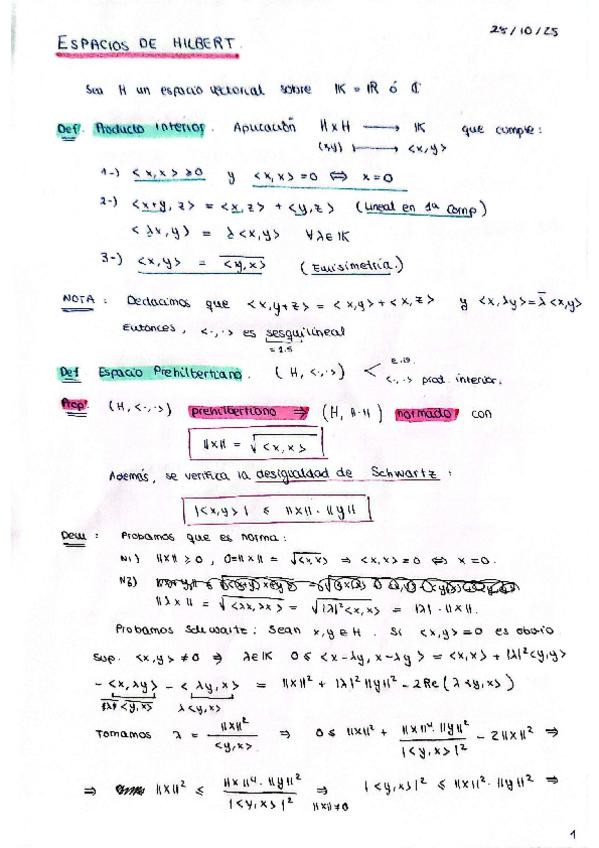 25/10/25
ESPACIOS DE HILBERT.
Sea H un espacio vectorial sobre IK = IR ó ℂ
Def. Producto interior. Aplicación H x H → IK que cumple:
(x,y) ↦ <x,y>
1-) <x,x> ≥ 0 y <x,x> = 0 ⇔ x = 0
2-) <x+y, z> = <x,z> + <y,z> (Lineal en 1ª comp)
<λx,y> = λ<x,y> ∀λ∈IK
3-) <x,y> = \overline{<y,x>}
NOTA: Deducimos que <x,y+z> = <x,y> + <x,z> y <x,λy> = \overline{λ}<x,y>
Entonces, <·,·> es sesquilineal
= 1.5
Def Espacio Prehilbertiano. (H, <·,·>) < e.v.
<·,·> prod. interior.
Prop. (H, <·,·>) prehilbertiano ⇒ (H, ||·||) normado con
||x|| = √<x,x>
Además, se verifica la desigualdad de Schwartz:
|<x,y>| ≤ ||x||·||y||
Dem: Probamos que es norma:
N1) ||x|| ≥ 0, 0=||x|| = √<x,x> ⇒ <x,x> = 0 ⇔ x = 0.
N2)
||λx|| = √<λx,λx> = √|λ|²<x,x> = |λ|·||x||.
Probamos Schwartz: Sean x,y∈H. Si <x,y>=0 es obvio.
Sup. <x,y> ≠ 0 ⇒ λ∈IK 0 ≤ <x-λy, x-λy> = <x,x> + |λ|²<y,y>
- <x,λy> - <λy,x> = ||x||² + |λ|²||y||² - 2Re(λ<y,x>)
λ<y,x>
Tomamos λ = ||x||²/<y,x> ⇒ 0 ≤ ||x||² + ||x||⁴·||y||²/|<y,x>|² - 2||x||² ⇒
⇒ ||x||² ≤ ||x||⁴·||y||²/|<y,x>|² ⇒ |<y,x>|² ≤ ||x||²·||y||² ⇒
||x||≠0
1